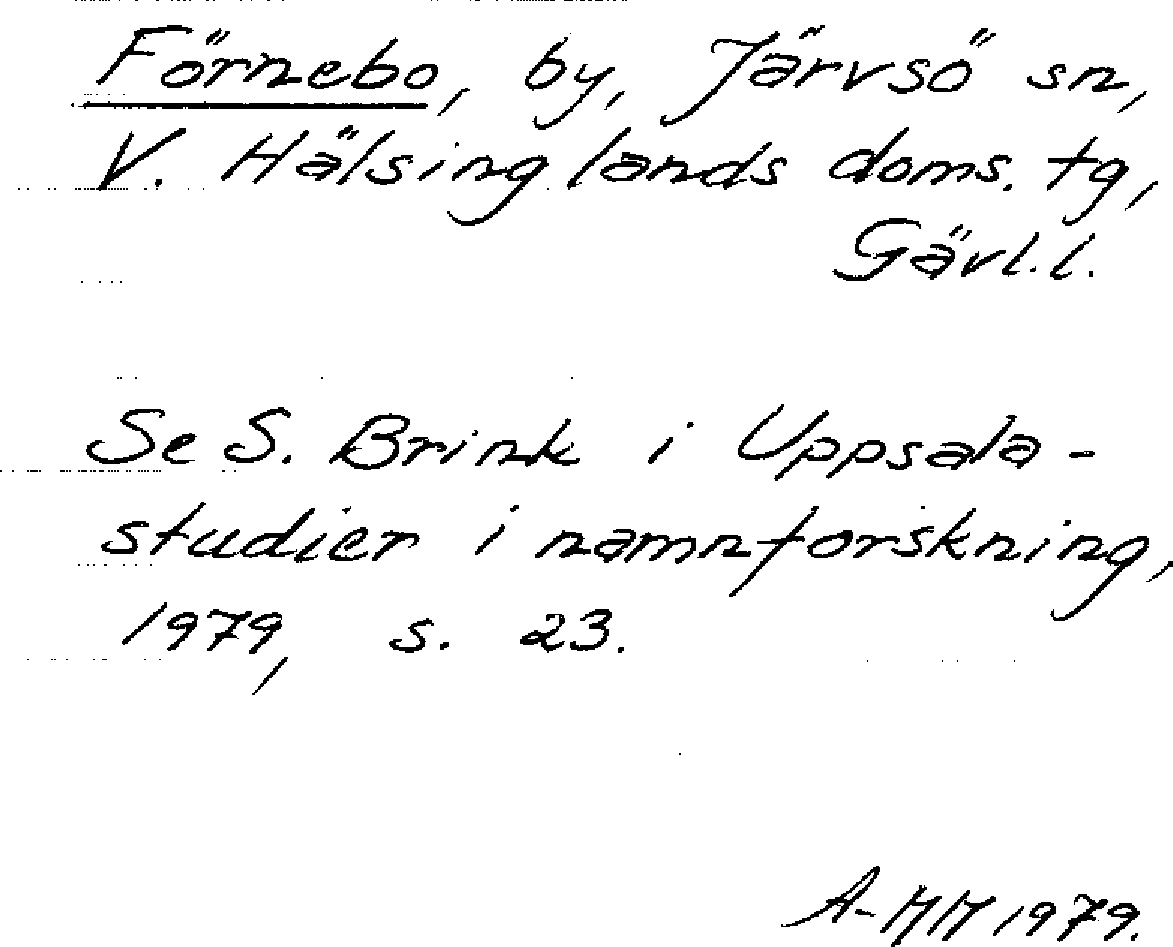 Förnebo, by, Järvsö sn,
V. Hälsinglands doms. tg,
Gävl. l.
Se S. Brink i Uppsala-
studier i namnforskning,
1979, s. 23.
A-MM 1979.